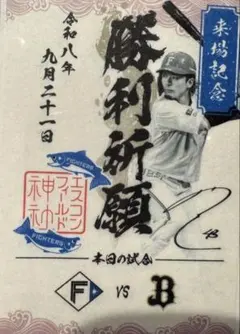 来場記念
勝利祈願
令和八年
九月二十一日
FIGHTERS
エスコン
フィールド
神社
FIGHTERS
本日の試合
F VS B